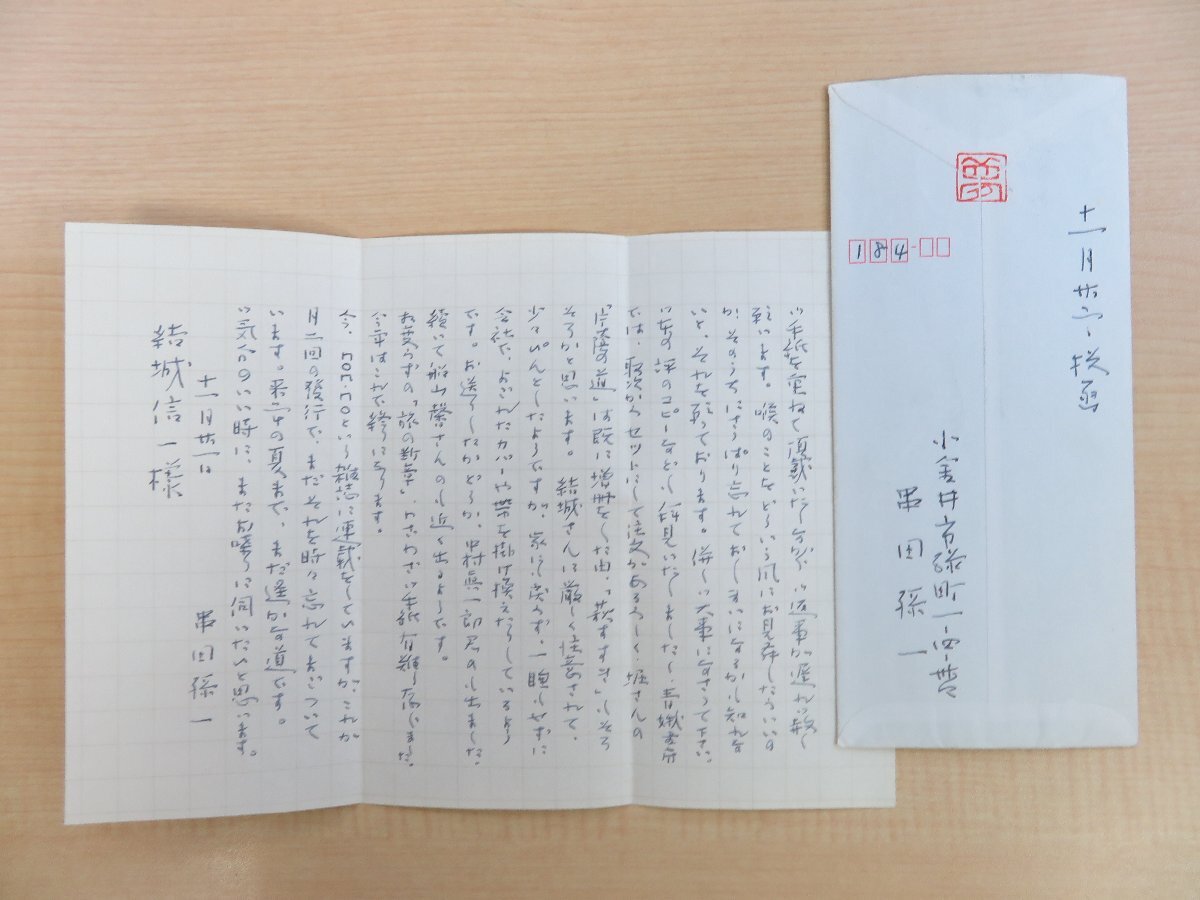 お手紙を重ねて頂戴いたしながら、お返事が遅れ、
ます。喉のことをどういう風にお見舞したらいいの
か、そのうちにさっぱり忘れておしまいになるかも知れな
いと、それを願っております。併し大事になさって下さい。
評のコピーなども拝見いたしました。
では、取次からセットにして注文があるらしく、堀さんの
の道」は既に増冊をした由、「萩すすき」もそろ
そろかと思います。結城さんに厳しく注意されて、
少々ぴんとしたようですが、家に戻らず、一睡もせずに
会社で、よごれたカバーや帯を掛け換えたりしているよう
です。お送りしたかどうか、中村真一郎君のも出ました。
続いて船山馨さんのも近く出るようです。
お変らずの「旅の断章」、わざわざお手紙有難う存じました。
今年はこれで終りになります。
今、non・noという雑誌に連載をしていますが、これが
月二回の発行で、まだそれを時々忘れてまごついて
います。来年の夏まで、まだ遥かな道です。
お気分のいい時に、またお喋りに伺いたいと思います。
十一月廿一日
串田孫一
結城信一様
184
十一月廿二、投函
小金井市緑町一‐四‐廿四
串田孫一